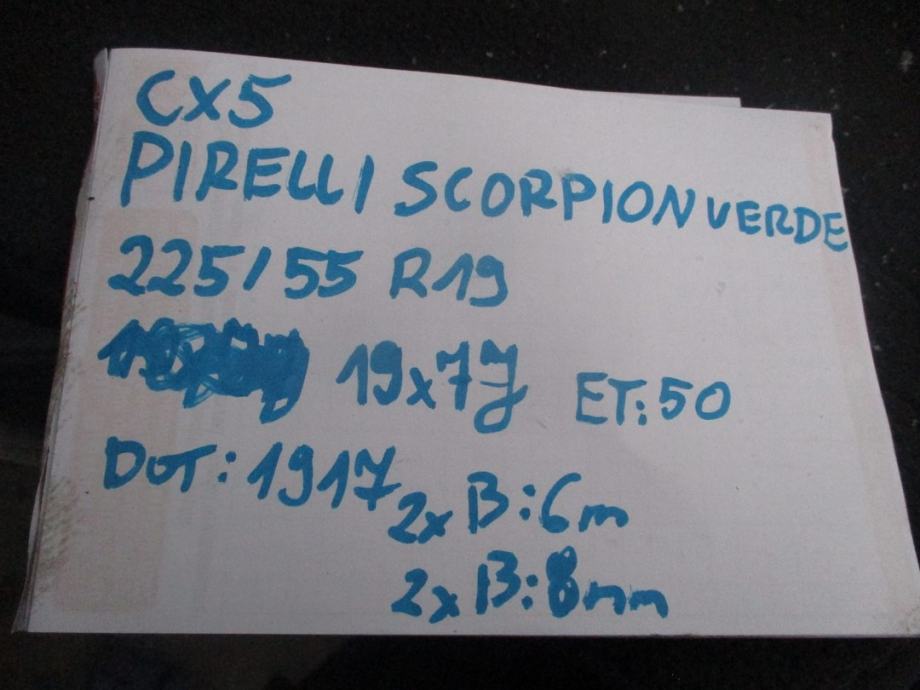 CX5
PIRELLI SCORPION VERDE
225/55 R19
19x7J ET:50
DOT: 1917
2x B:6m
2x B:8mm